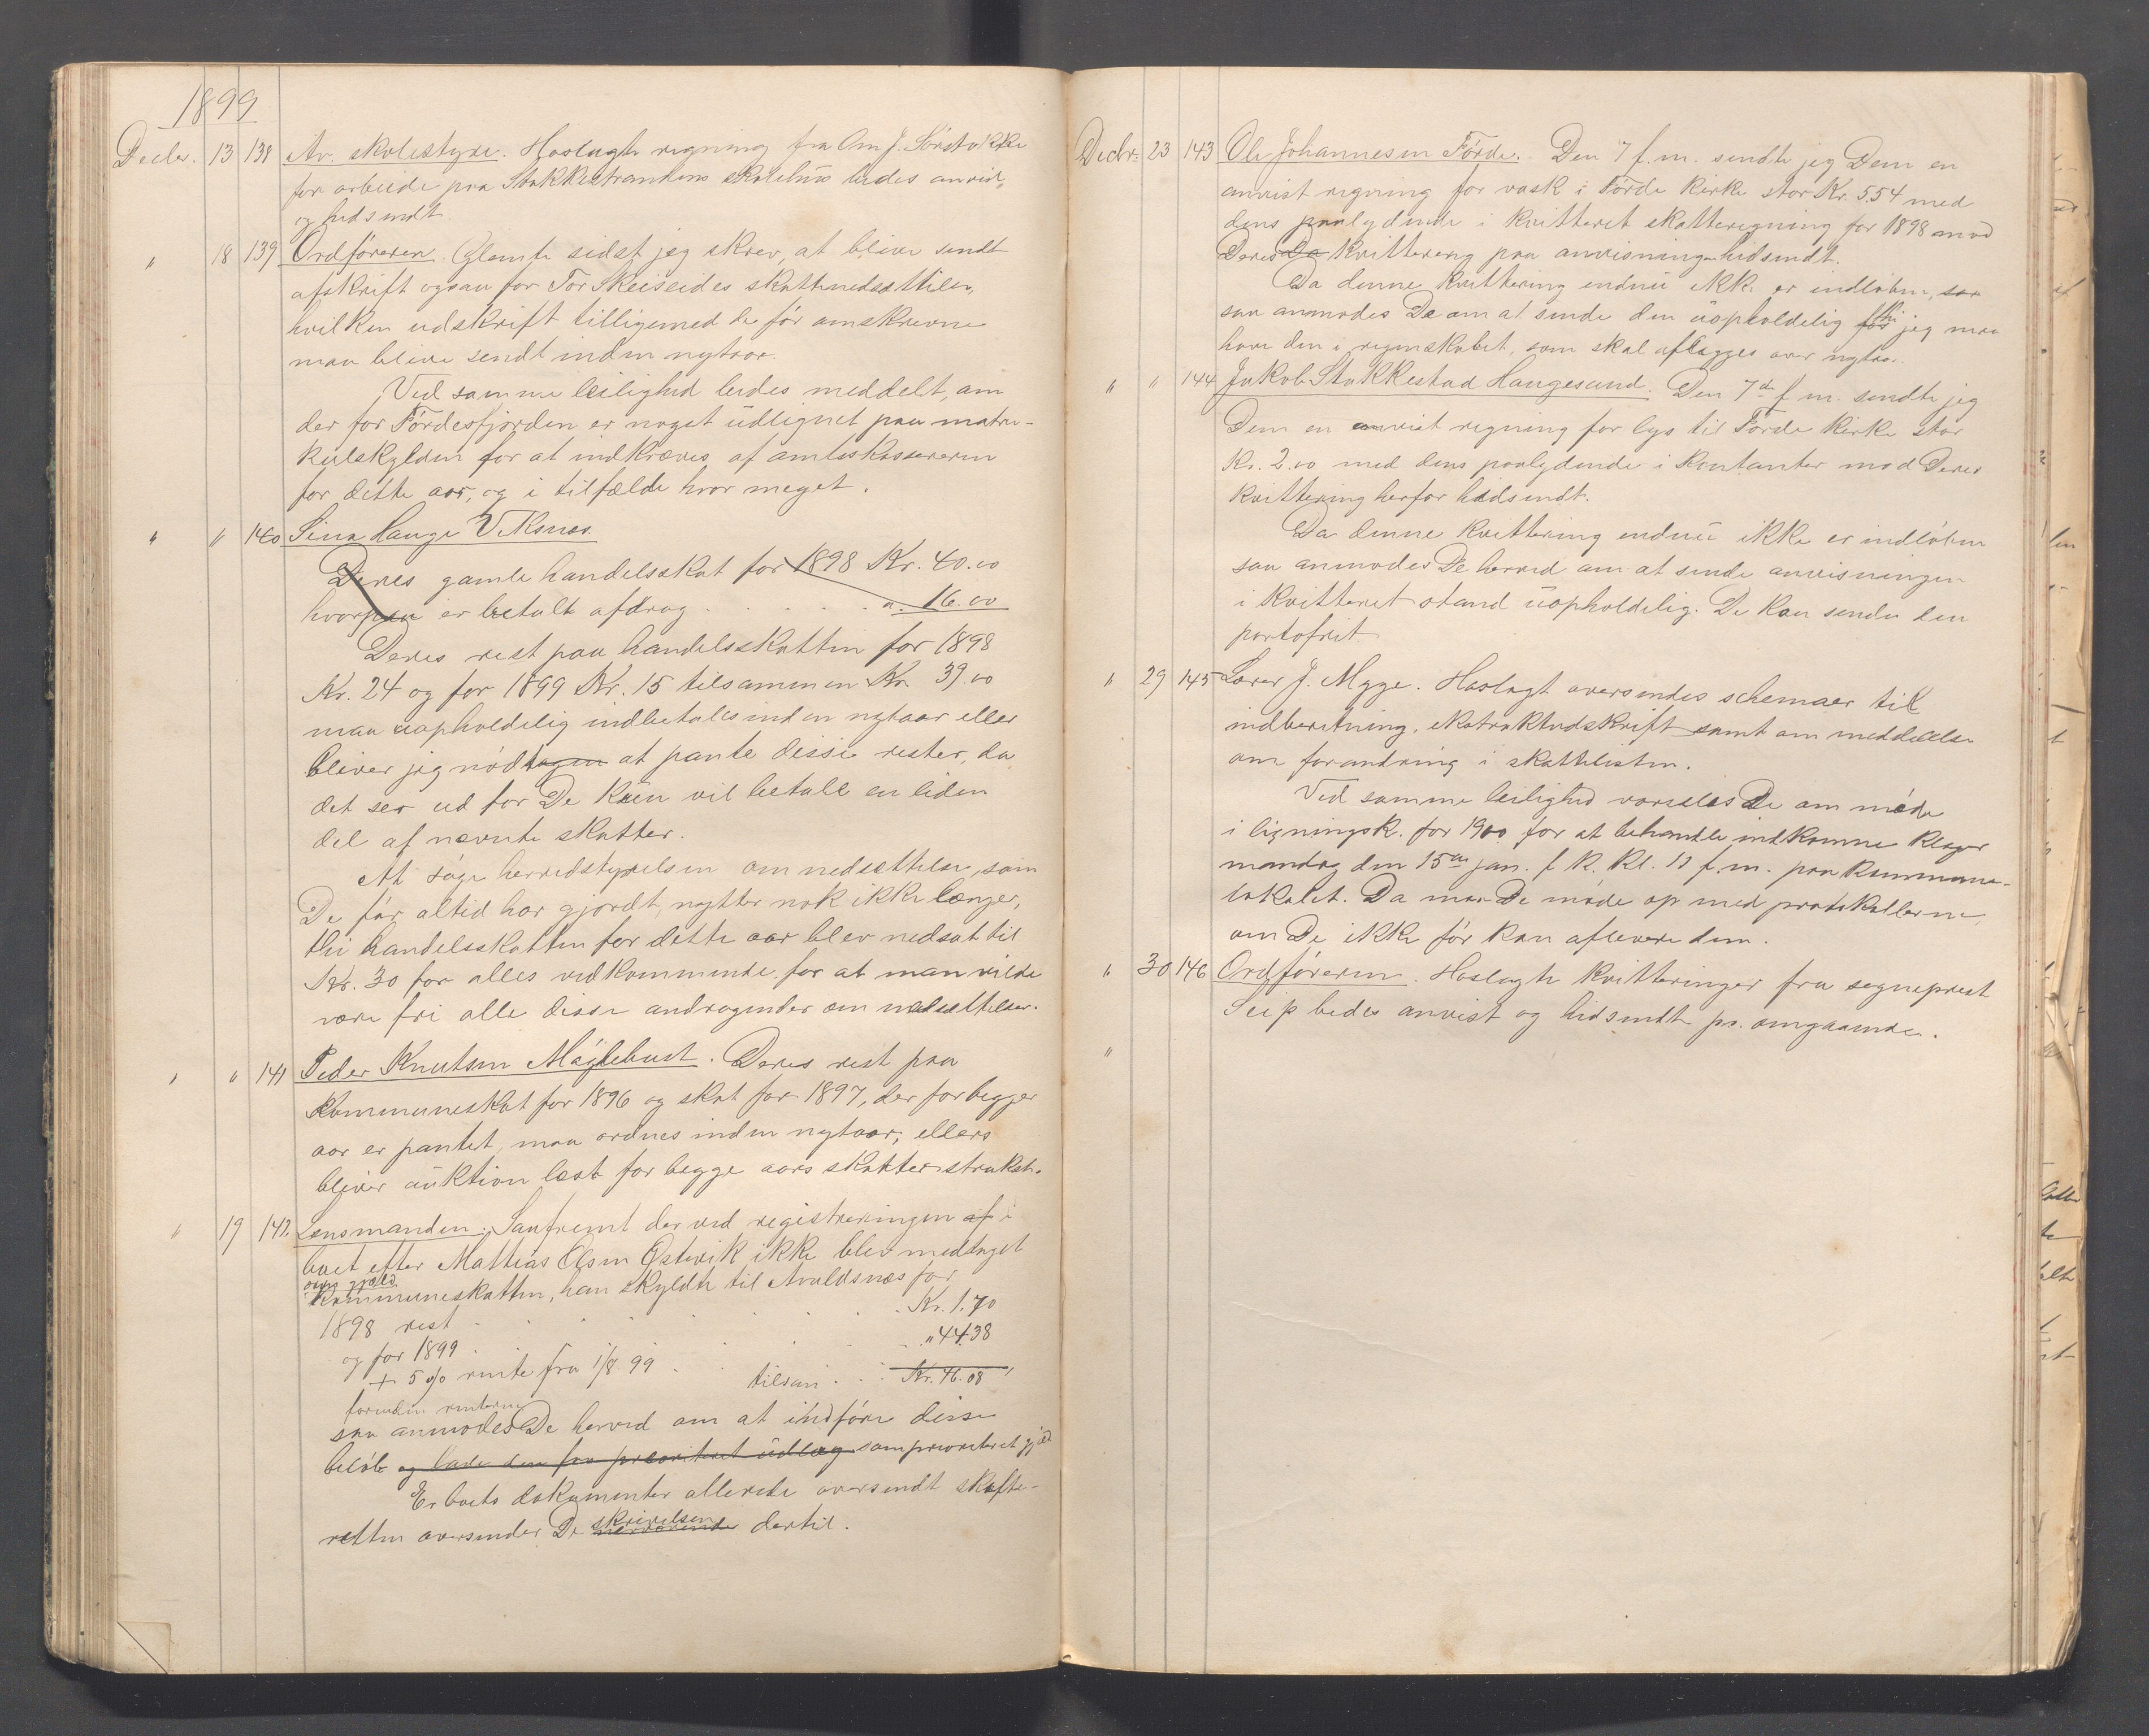 1899
Decbr. 13 138 Av. skolestyre. Hoslagte regning fra Om J. Sörstokke
for arbeide paa Stokkestrandens skolehus bedes anvist
og hidsendt.
" 18 139 Ordföreren. Glemte sidst jeg skrev, at blive sendt
afskrift ogsaa for Tor Skeiseides skattenedsættelse,
hvilken udskrift tilligemed de för omskrevne
maa blive sendt inden nytaar.
Ved samme leilighed bedes meddelt, om
der for Fördesfjorden er noget udlignet paa matri-
kulskylden for at indkræves af amtskassereren
for dette aar, og i tilfælde hvor meget.
" " 140 Sina Hauge Viksnes.
Deres gamle handelsskat for 1898 Kr. 40.00
hvorpaa er betalt afdrag . . . . . " 16.00
Deres rest paa handelsskatten for 1898
Kr. 24 og for 1899 Kr. 15 tilsammen Kr. 39.00
maa uopholdelig indbetales inden nytaar eller
bliver jeg nödtagen at pante disse rester, da
det ser ud for De kun vil betale en liden
del af nævnte skatter.
At söge herredstyrelsen om nedsættelse, som
De för altid har gjordt, nytter nok ikke længe,
thi handelsskatten for dette aar blev nedsat til
Kr. 30 for alles vedkommende, for at man vilde
være fri alle disse andragender om nedsættelser.
" " 141 Peder Knutsen Möglebust. Deres rest paa
kommuneskat for 1896 og skat for 1897, der for begge
aar er pantet, maa ordnes inden nytaar, ellers
bliver auktion læst for begge aars skatter strakst.
" 19 142. Lensmanden. Saafremt der ved registreringen af i
boet efter Mattias Olsen Östevik ikke blev medtaget
som gjæld
kommuneskatten, han skyldte til Avaldsnes for
1898 rest . . . . . . Kr. 1.70
og for 1899 . . . . . " 44.38
+ 5 % rente fra 1/8 99 . . tilsam . . Kr. 46.08
foruden renterne
saa anmodes De herved om at indföre disse
belöb og lade dem faa prioritert udlæg som prioriteret gjæld
Er boets dokumenter allerede oversendt skifte-
retten oversender De skrivelsen dertil.
Decbr. 23 143 Ole Johannesen Förde. Den 7 f.m. sendte jeg Dem en
anvist regning for vask i Förde kirke stor Kr. 5.54 med
dens paalydende i kvitteret skatteregning for 1898 mod
Deres Da kvittering paa anvisningen hidsendt.
Da denne kvittering endnu ikke er indlöben, saa
saa anmodes De om at sende den uopholdelig för thi jeg maa
have den i regnskabet, som skal aflægges over nytaar.
" " 144 Jakob Stokkestad Haugesund. Den 7de f.m. sendte jeg
Dem en anvist regning for lys til Förde kirke stor
Kr. 2.00 med dens paalydende i kontanter mod Deres
kvittering herfor hidsendt.
Da denne kvittering endnu ikke er indlöben
saa anmodes De herved om at sende anvisningen
i kvitteret stand uopholdelig. De kan sende den
portofrit.
" 29 145 Lærer J. Mygge. Hoslagt oversendes schemaer til
indberetning, ekstraktudskrift samt om meddelelse
om forandring i skattelisten.
Ved samme leilighed varsles De om möde
i ligningsk. for 1900 for at behandle indkomne klager
mandag den 15de jan. f k. kl. 10 f.m. paa kommune-
lokalet. Da maa De möde op med protokollerne,
om De ikke för kan aflevere dem.
" 30 146 Ordföreren. Hoslagte kvitteringer fra sogneprest
Seip bedes anvist og hidsendt pr. omgaaende.
"